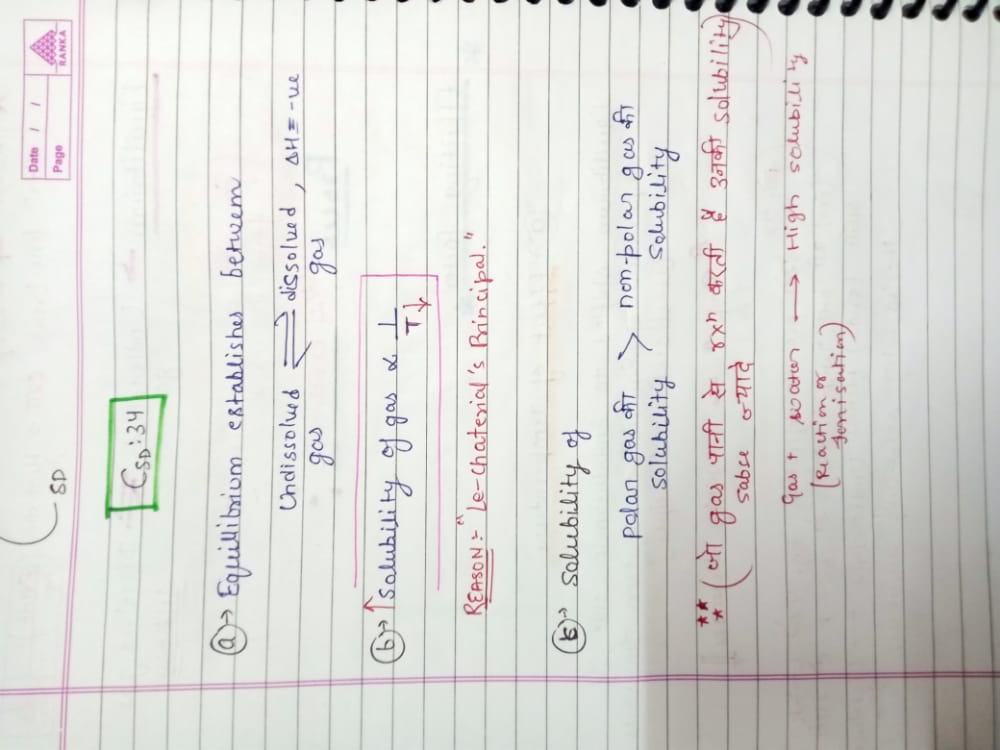 Date / /
Page
RANKA
SD
CSD:34
(a)→ Equillibrium establishes between
Undissolved ⇌ dissolved , ΔH = -ve
gas gas
(b)→ ↑Solubility of gas α 1/T↓
REASON:- "Le-Chaterial's Principal."
(c)→ Solubility of
polar gas की > non-polar gas की
solubility solubility
** (जो गैस पानी से rxn करती है उनकी solubility)
सबसे ज्यादे
Gas + water → High solubility
[Reaction or
Ionisation)